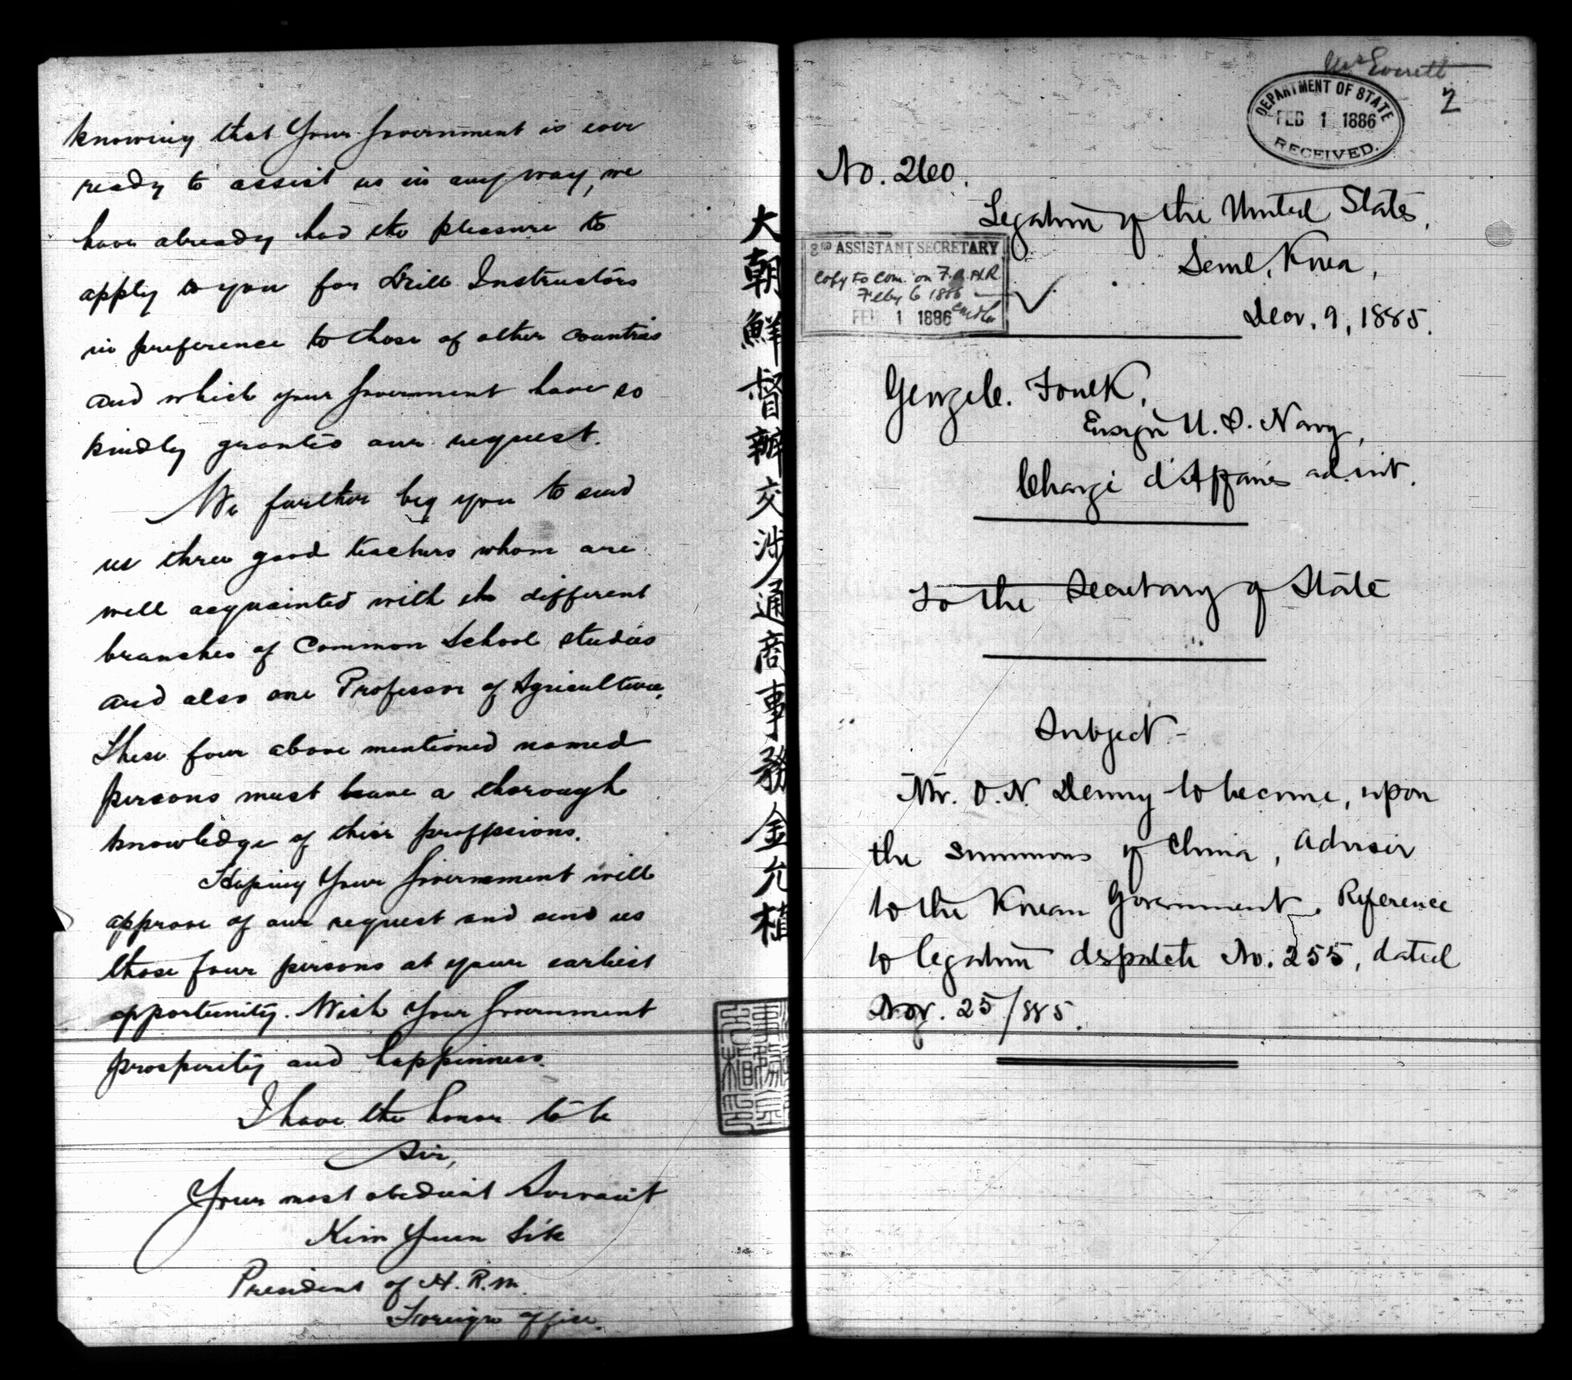 knowing that Your Government is ever
ready to assist us in any way, we
have already had the pleasure to
apply to you for Drill Instructors
in preference to those of other countries
and which your Government have so
kindly granted our request.
We further beg you to send
us three good teachers whom are
well acquainted with the different
branches of Common School studies
and also one Professor of Agriculture.
These four above mentioned named
persons must have a thorough
knowledge of their proffesions.
Hoping Your Government will
approve of our request and send us
those four persons at your earliest
opportunity. Wish Your Government
prosperity and happinness.
I have the honor to be
Sir,
Your most obedient Servant
Kim Yuen Sik
President of H.K.M.
Foreign Office.
大朝鮮督辦交涉通商事務金允植
Mr Everett
2
DEPARTMENT OF STATE
FEB 1 1886
RECEIVED.
No. 260.
Legation of the United States,
Seoul, Korea,
Decr. 9, 1885.
3RD ASSISTANT SECRETARY
Copy to Com. on F.A. H.R.
Feby 6 1886
FEB 1 1886
George C. Foulk,
Ensign U.S. Navy,
Chargé d'Affaires ad.int.
To the Secretary of State
Subject-
Mr. O.N. Denny to become, upon
the summons of China, adviser
to the Korean Government. Reference
to legation dispatch No. 255, dated
Nov. 25/885.